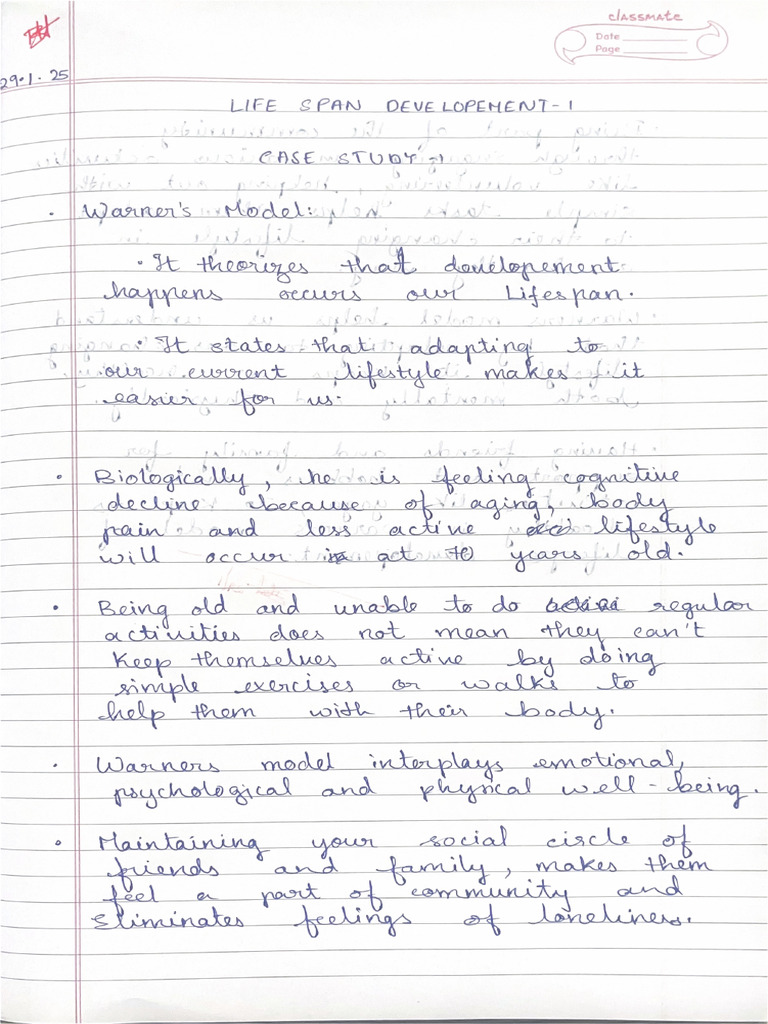 classmate
Date
Page
29.1.25
LIFE SPAN DEVELOPEMENT-1
CASE STUDY-1
• Warner's Model:
• It theorizes that developement
happens occurs our Lifespan.
• It states that adapting to
our current lifestyle makes it
easier for us.
• Biologically, he is feeling cognitive
decline because of aging, body
pain and less active lifestyle
will occur at 70 years old.
• Being old and unable to do regular
activities does not mean they can't
keep themselves active by doing
simple exercises or walks to
help them with their body.
• Warners model interplays emotional,
psychological and physical well-being.
• Maintaining your social circle of
friends and family, makes them
feel a part of community and
Eliminates feelings of loneliness.